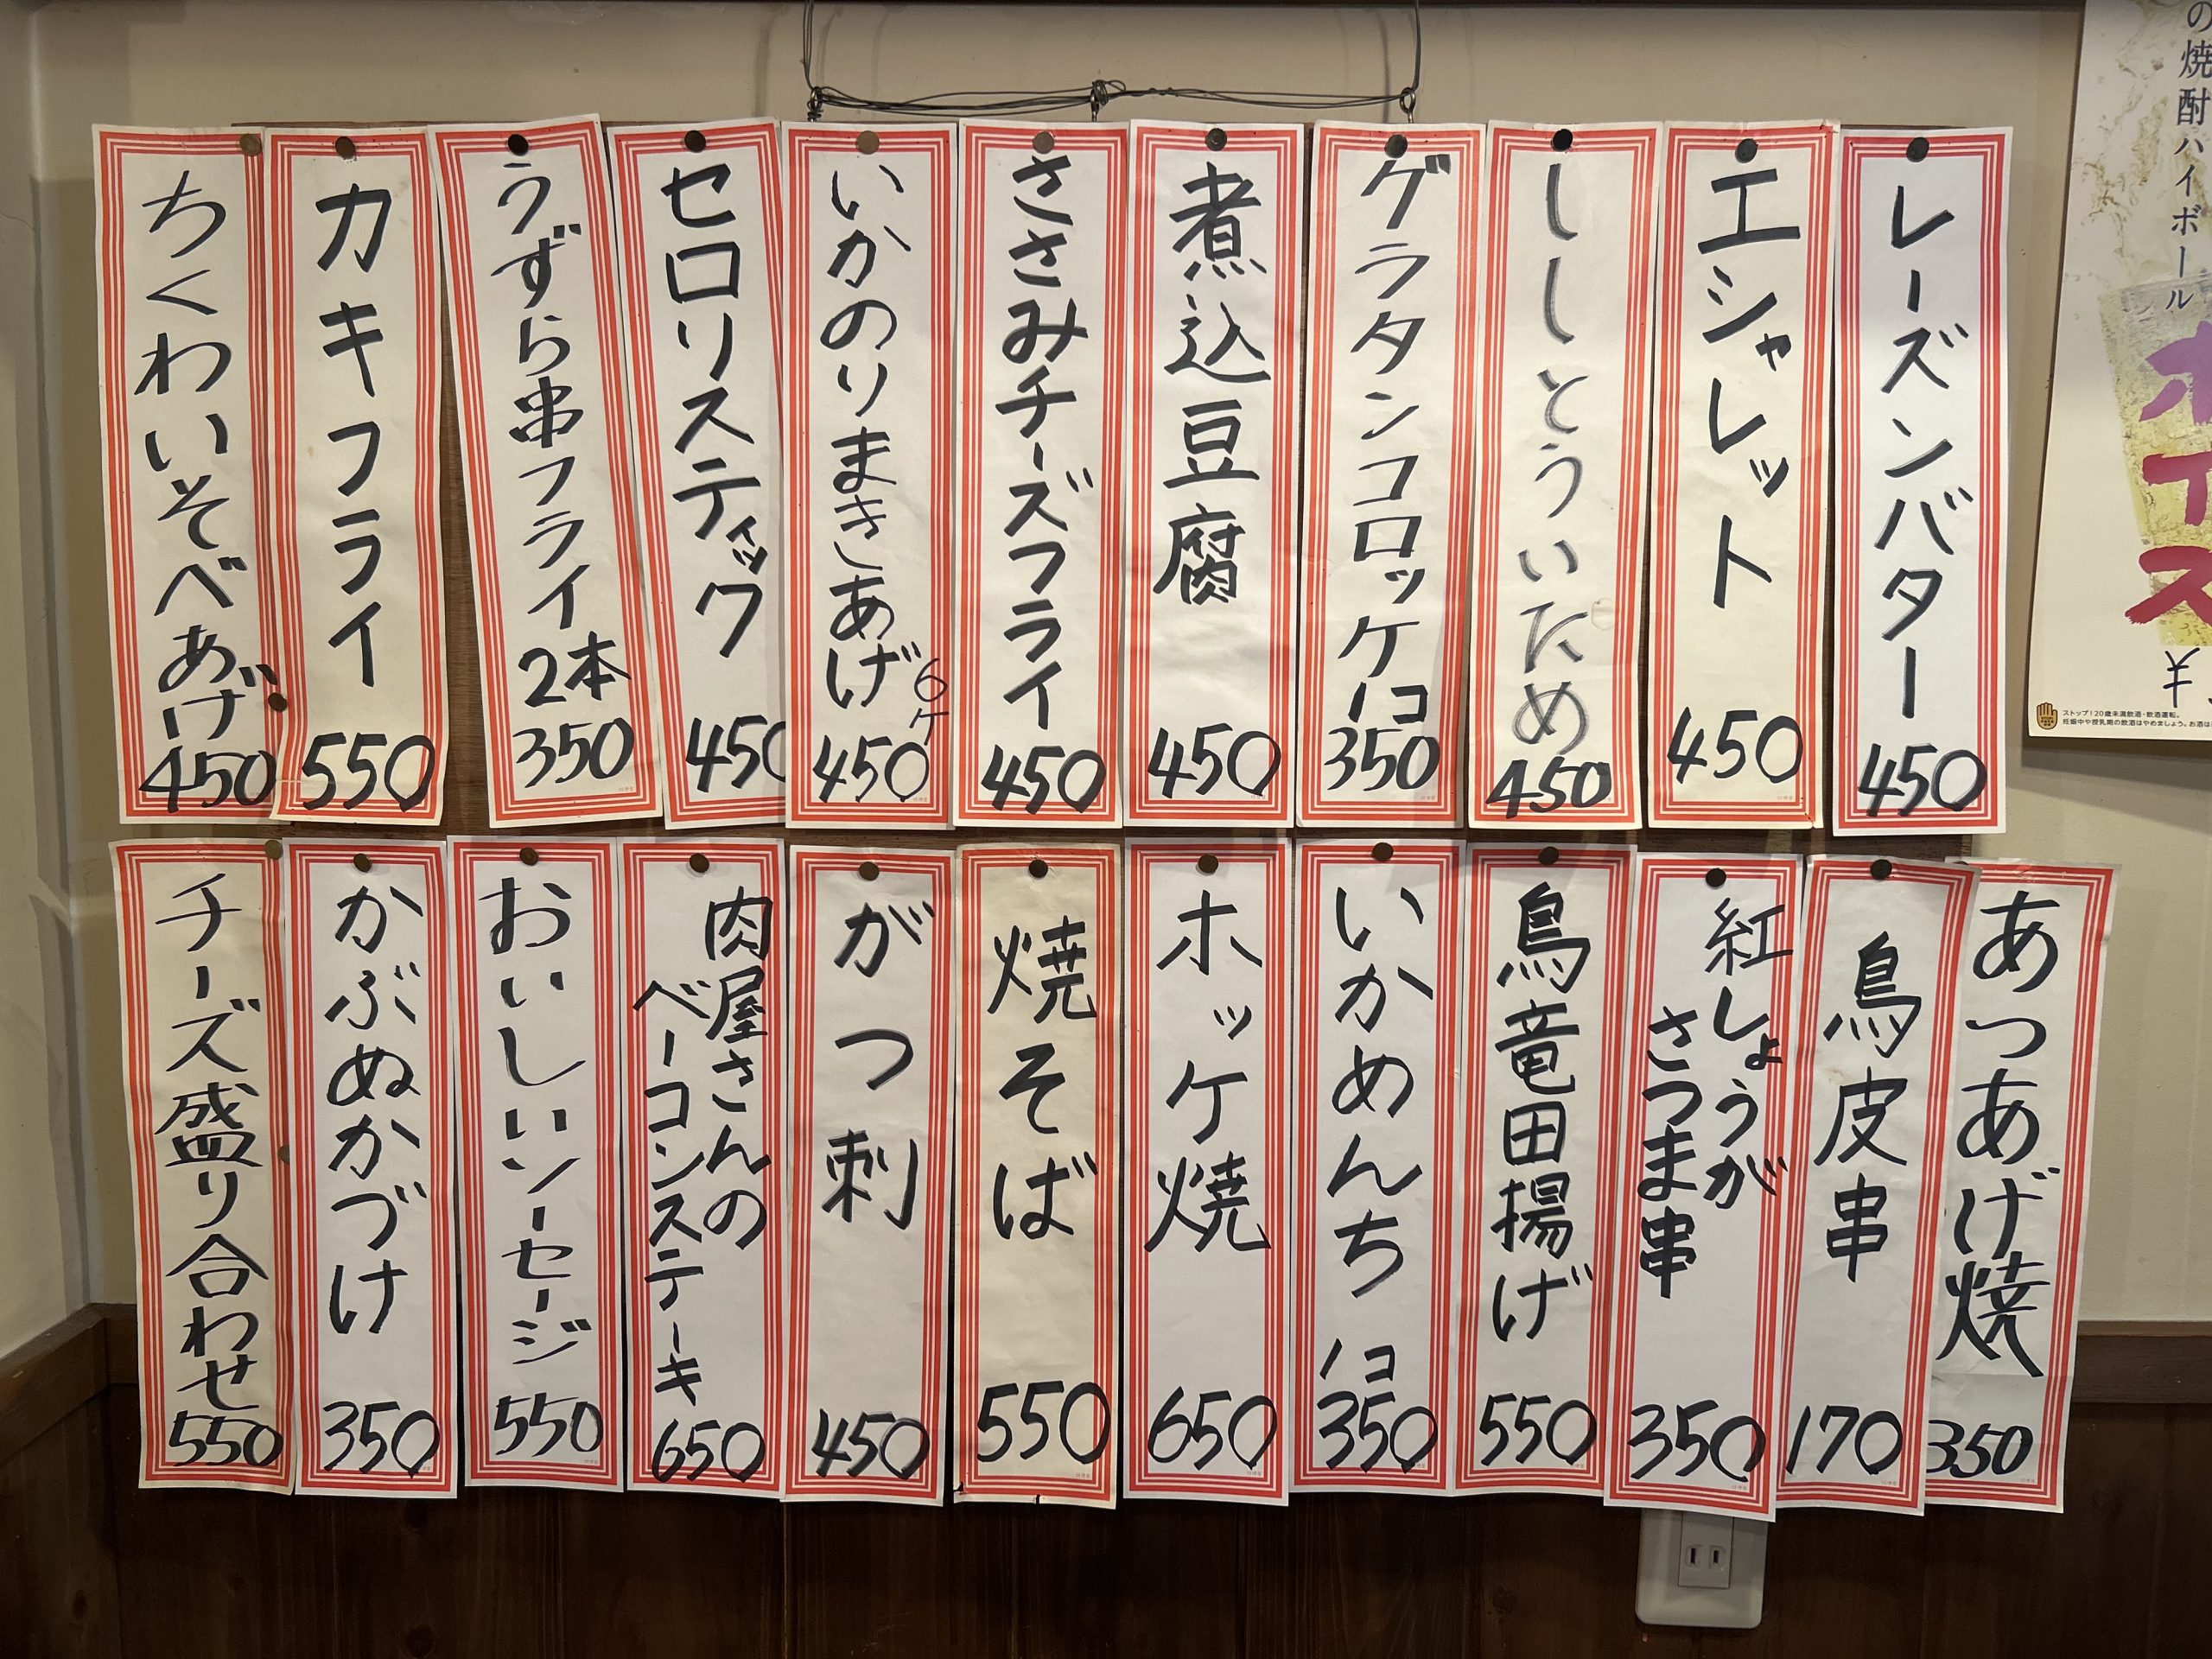 レーズンバター
450
エシャレット
450
ししとういため
450
グラタンコロッケ
1コ
350
煮込豆腐
450
ささみチーズフライ
450
いかのりまきしあげ
6ケ
450
セロリスティック
450
うずら串フライ
2本
350
カキフライ
550
ちくわいそべあげ
450
あつあげ焼
350
鳥皮串
170
紅しょうが
さつま串
350
鳥竜田揚げ
550
いかめんち
1コ
350
ホッケ焼
650
焼そば
550
がつ刺
450
肉屋さんの
ベーコンステーキ
650
おいしいソーセージ
550
かぶぬかづけ
350
チーズ盛り合わせ
550
の焼酎ハイボール
ホイス
¥
ストップ!20歳未満飲酒・飲酒運転。
妊娠中や授乳期の飲酒はやめましょう。お酒は